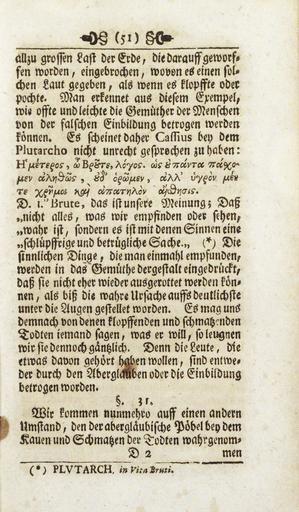 (51)
allzu grossen Last der Erde, die darauff geworf-
fen worden, eingebrochen, wovon es einen sol-
chen Laut gegeben, als wenn es klopffte oder
pochte. Man erkennet aus diesem Exempel,
wie offte und leichte die Gemüther der Menschen
von der falschen Einbildung betrogen werden
können. Es scheinet daher Cassius bey dem
Plutarcho nicht unrecht gesprochen zu haben:
Ἡμέτερος, ὦ Βροῦτε, λόγος. ὡς οὐ πάντα πάσχο-
μεν ἀληθῶς, οὐδ᾽ ὁρῶμεν, ἀλλ᾽ ὑγρὸν μέν
τι χρῆμα καὶ ἀπατηλὸν αἴσθησις.
D. i. Brute, das ist unsere Meinung; Daß
„nicht alles, was wir empfinden oder sehen,
„wahr ist, sondern es ist mit denen Sinnen eine
„schlüpffrige und betrügliche Sache.„ (*) Die
sinnlichen Dinge, die man einmahl empfunden,
werden in das Gemüthe dergestalt eingedrückt,
daß sie nicht eher wieder ausgerottet werden kön-
nen, als biß die wahre Ursache auffs deutlichste
unter die Augen gestellet worden. Es mag uns
demnach von denen klopffenden und schmatzenden
Todten iemand sagen, was er will, so leugnen
wir sie dennoch gäntzlich. Denn die Leute, die
etwas davon gehört haben wollen, sind entwe-
der durch den Aberglauben oder die Einbildung
betrogen worden.
§. 31.
Wir kommen nunmehro auff einen andern
Umstand, den der abergläubische Pöbel bey dem
Kauen und Schmatzen der Todten wahrgenom-
D 2 men
(*) PLVTARCH. in Vita Bruti.